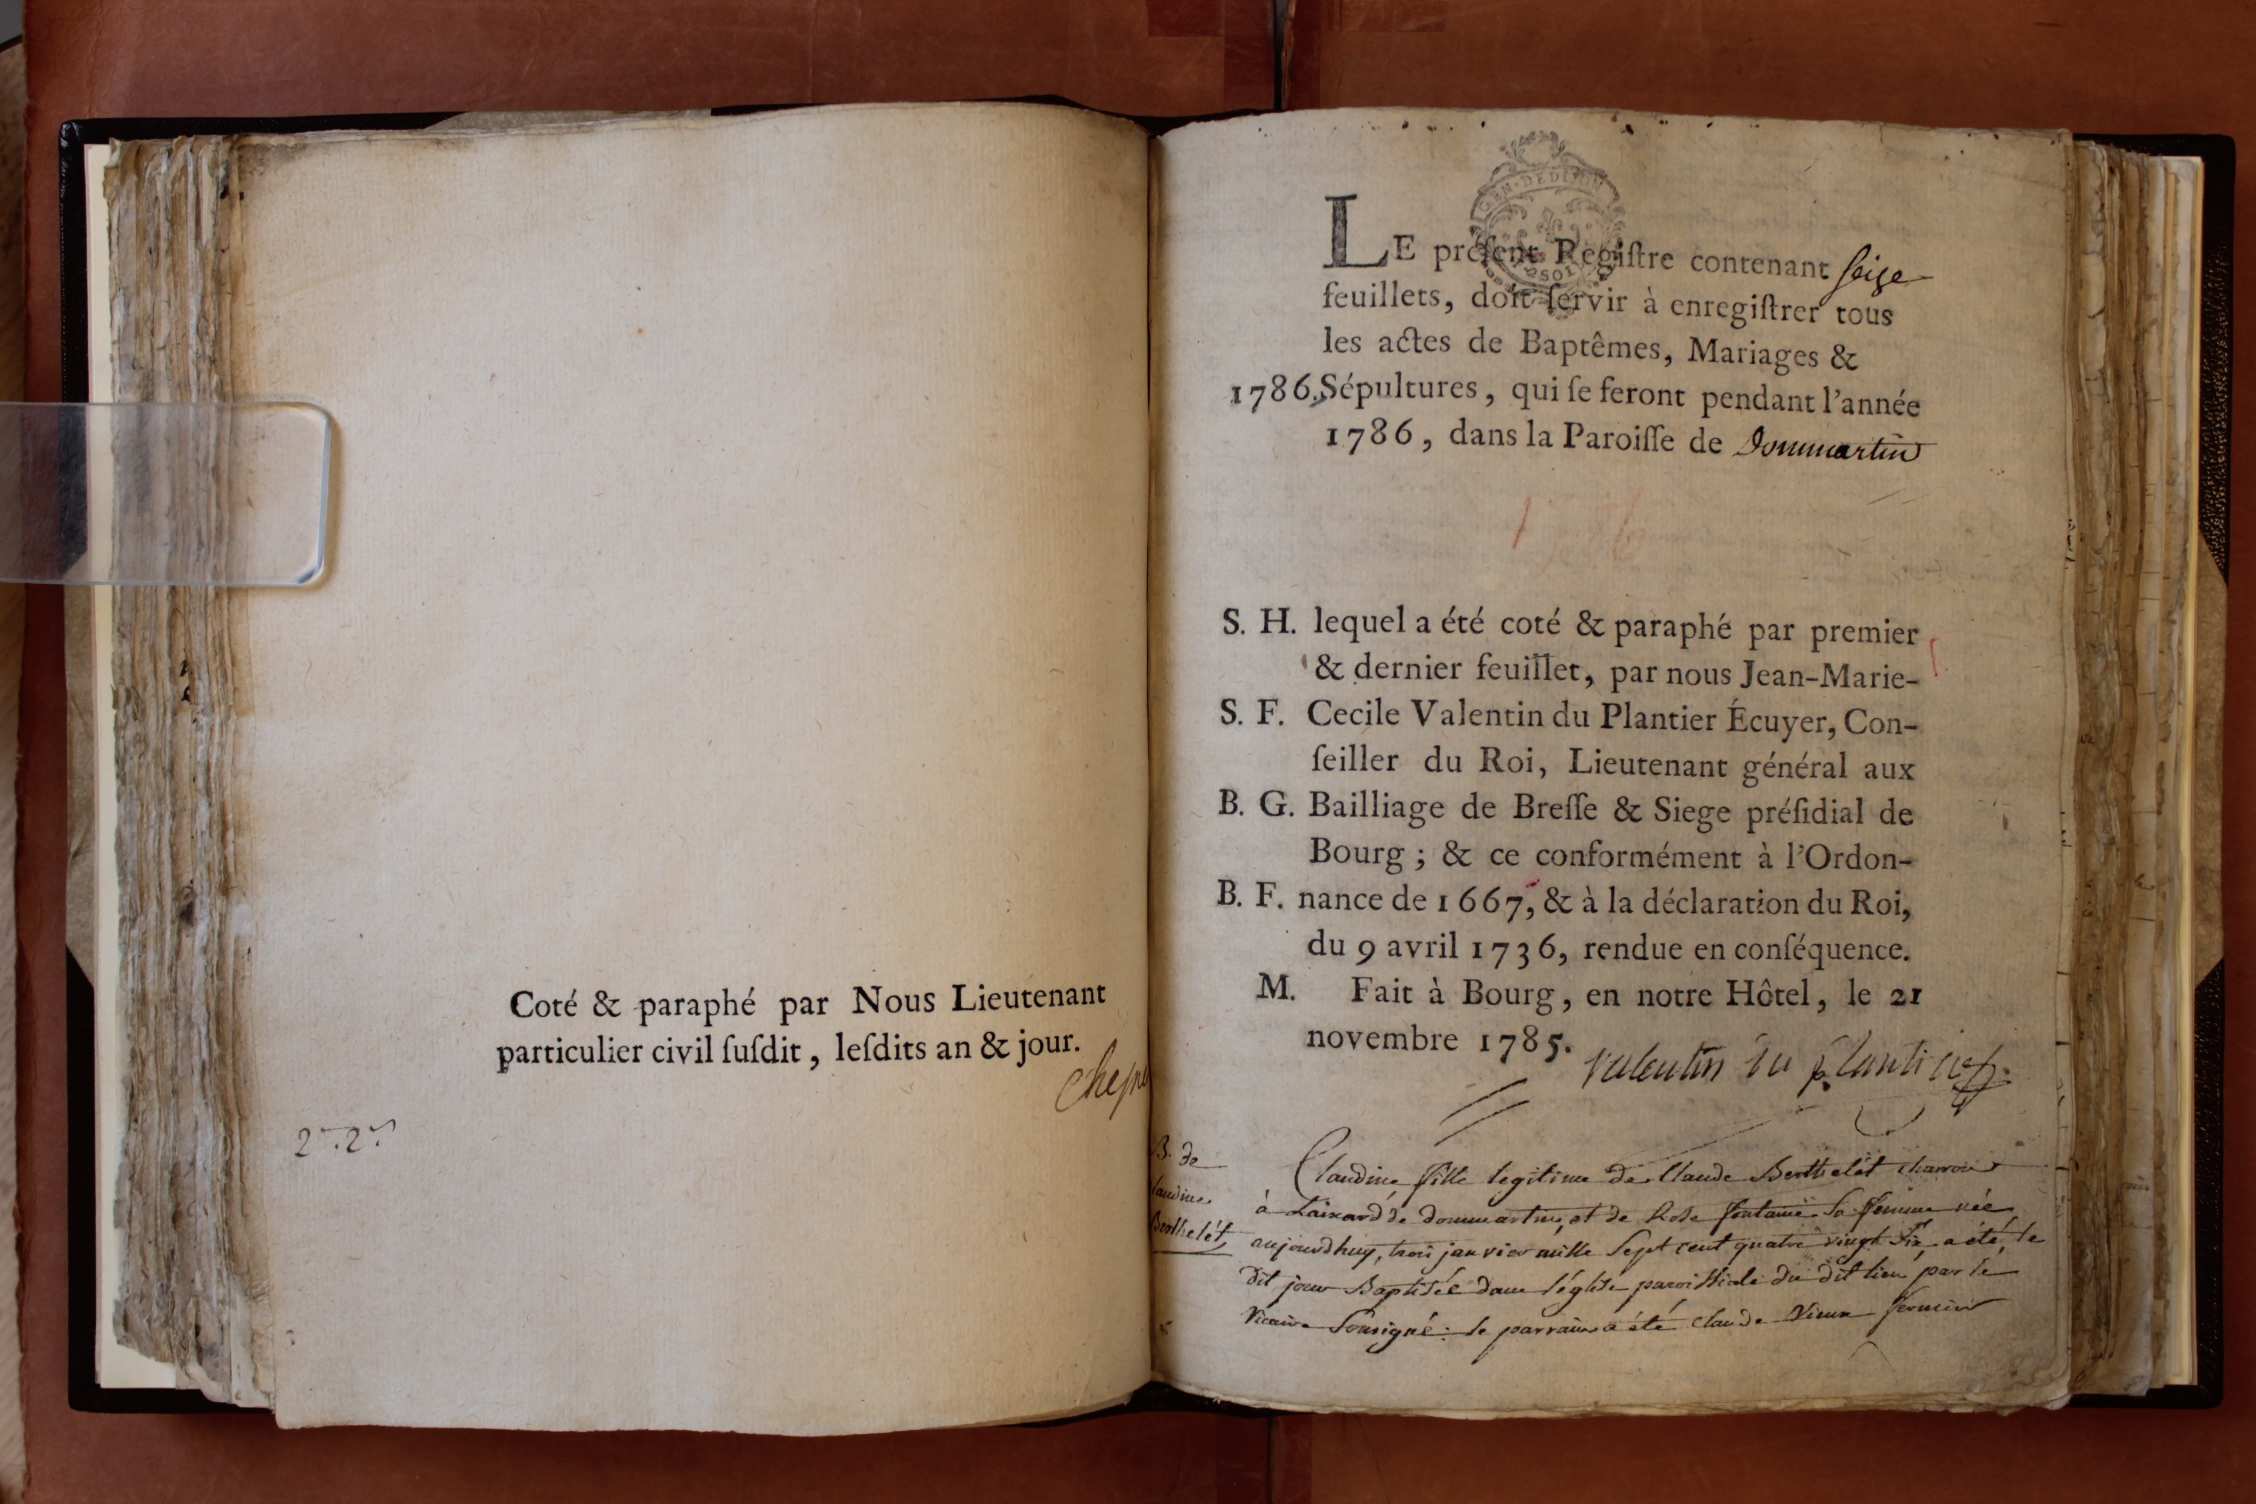 Coté & paraphé par Nous Lieutenant
particulier civil ſuſdit, leſdits an & jour.
GEN. DEDIJON
LE préſent Regiſtre contenant seize
feuillets, doit ſervir à enregiſtrer tous
les actes de Baptêmes, Mariages &
1786. Sépultures, qui ſe feront pendant l'année
1786, dans la Paroiſſe de Dommartin
1786
S. H. lequel a été coté & paraphé par premier
& dernier feuillet, par nous Jean-Marie-
S. F. Cecile Valentin du Plantier Écuyer, Con-
ſeiller du Roi, Lieutenant général aux
B. G. Bailliage de Breſſe & Siege préſidial de
Bourg; & ce conformément à l'Ordon-
B. F. nance de 1667, & à la déclaration du Roi,
du 9 avril 1736, rendue en conſéquence.
M. Fait à Bourg, en notre Hôtel, le 21
novembre 1785.
Valentin du plantier
B. de
Claudine
Berthelét
Claudine fille legitime de Claude Berthelét charron
à de dommartin, et de Rose fontaine Sa femme née
aujourdhuy, trois janvier mille Sept cent quatre vingt Six, a été, le
dit jour Baptisée dans l'église paroissiale du dit lieu, par le
Vicaire Sousigné: le parrain a été Claude Vieux fermier